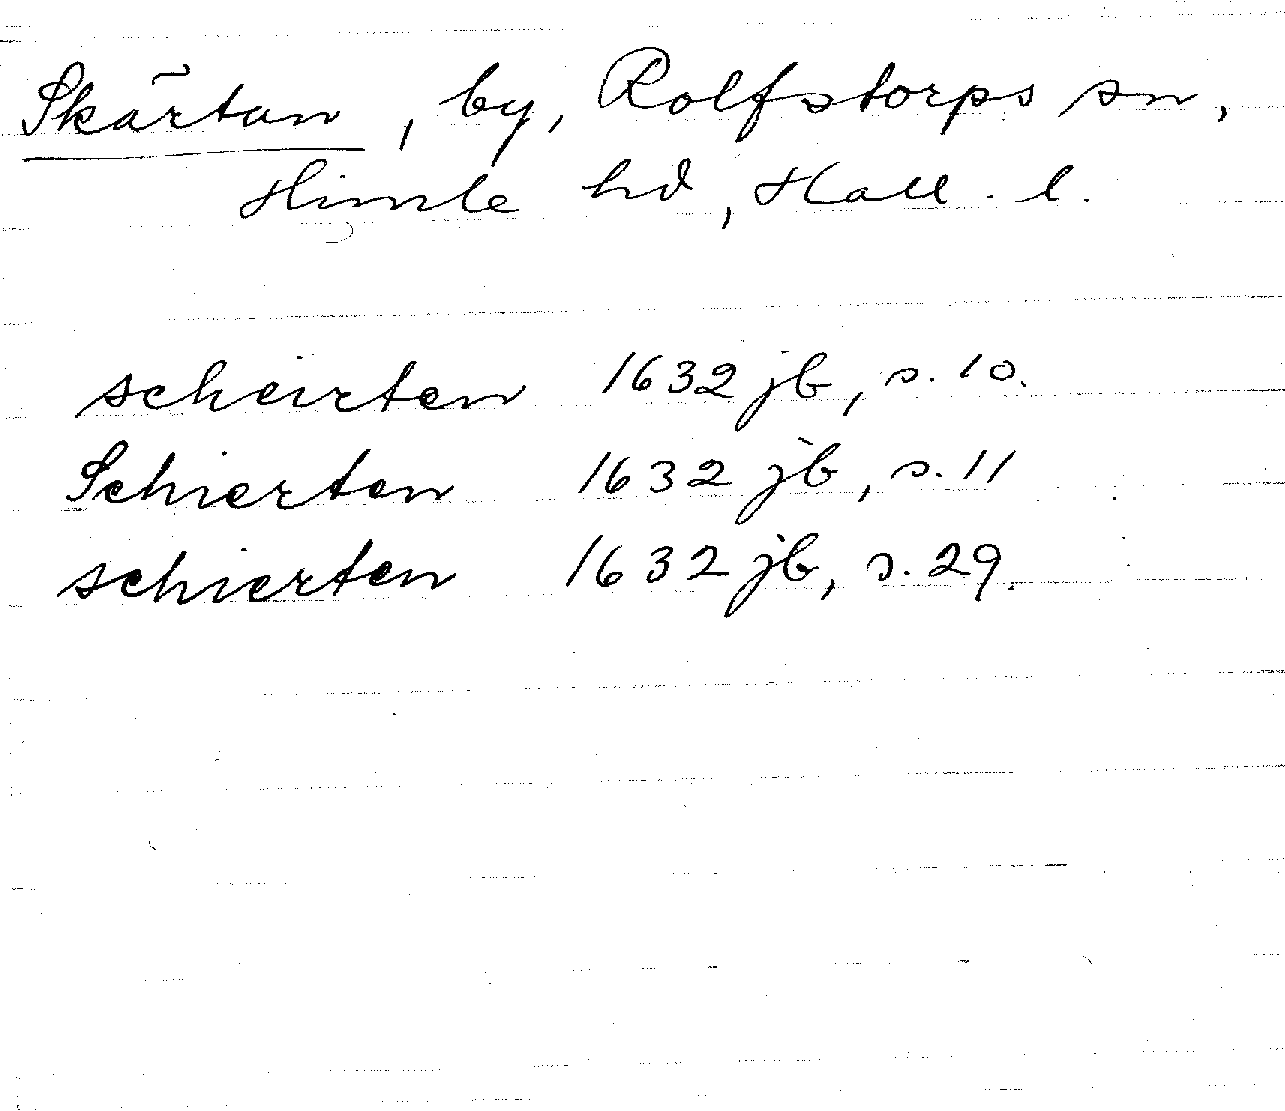 Skärtan, by, Rolfstorps sn,
Himle hd, Hall. l.
scheirten 1632 jb, s. 10.
Schierten 1632 jb, s. 11
schierten 1632 jb, s. 29.